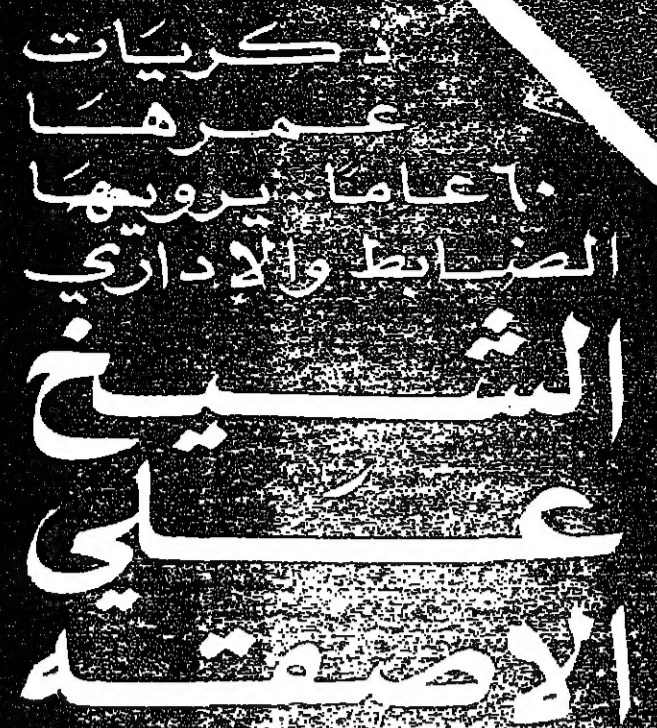 ذكريات
عمرها
٦٠ عاما.. يرويها
الضابط والإداري
الشيخ
علي
الاصقه